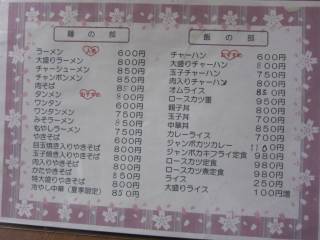 麺の部
ラーメン 人気 600円
大盛りラーメン 800円
チャーシューメン 850円
チャンポンメン 850円
肉そば 850円
タンメン おすすめ 800円
ワンタン 600円
ワンタンメン 750円
みそラーメン 800円
もやしラーメン 750円
やきそば 600円
目玉焼き入りやきそば 800円
玉子焼き入りやきそば 800円
肉入りやきそば 800円
かたやきそば 850円
特大盛りやきそば 800円
冷やし中華(夏季限定) 850円
飯の部
チャーハン おすすめ 600円
大盛りチャーハン 800円
玉子チャーハン 750円
肉入りチャーハン 800円
オムライス 850円
ロースカツ重 950円
親子丼 800円
玉子丼 700円
中華丼 850円
カレーライス 700円
ジャンボカツカレー
ジャンボカキフライ定食 980円
ロースカツ定食 980円
ロースカツ煮定食 980円
ライス 250円
大盛りライス 100円増